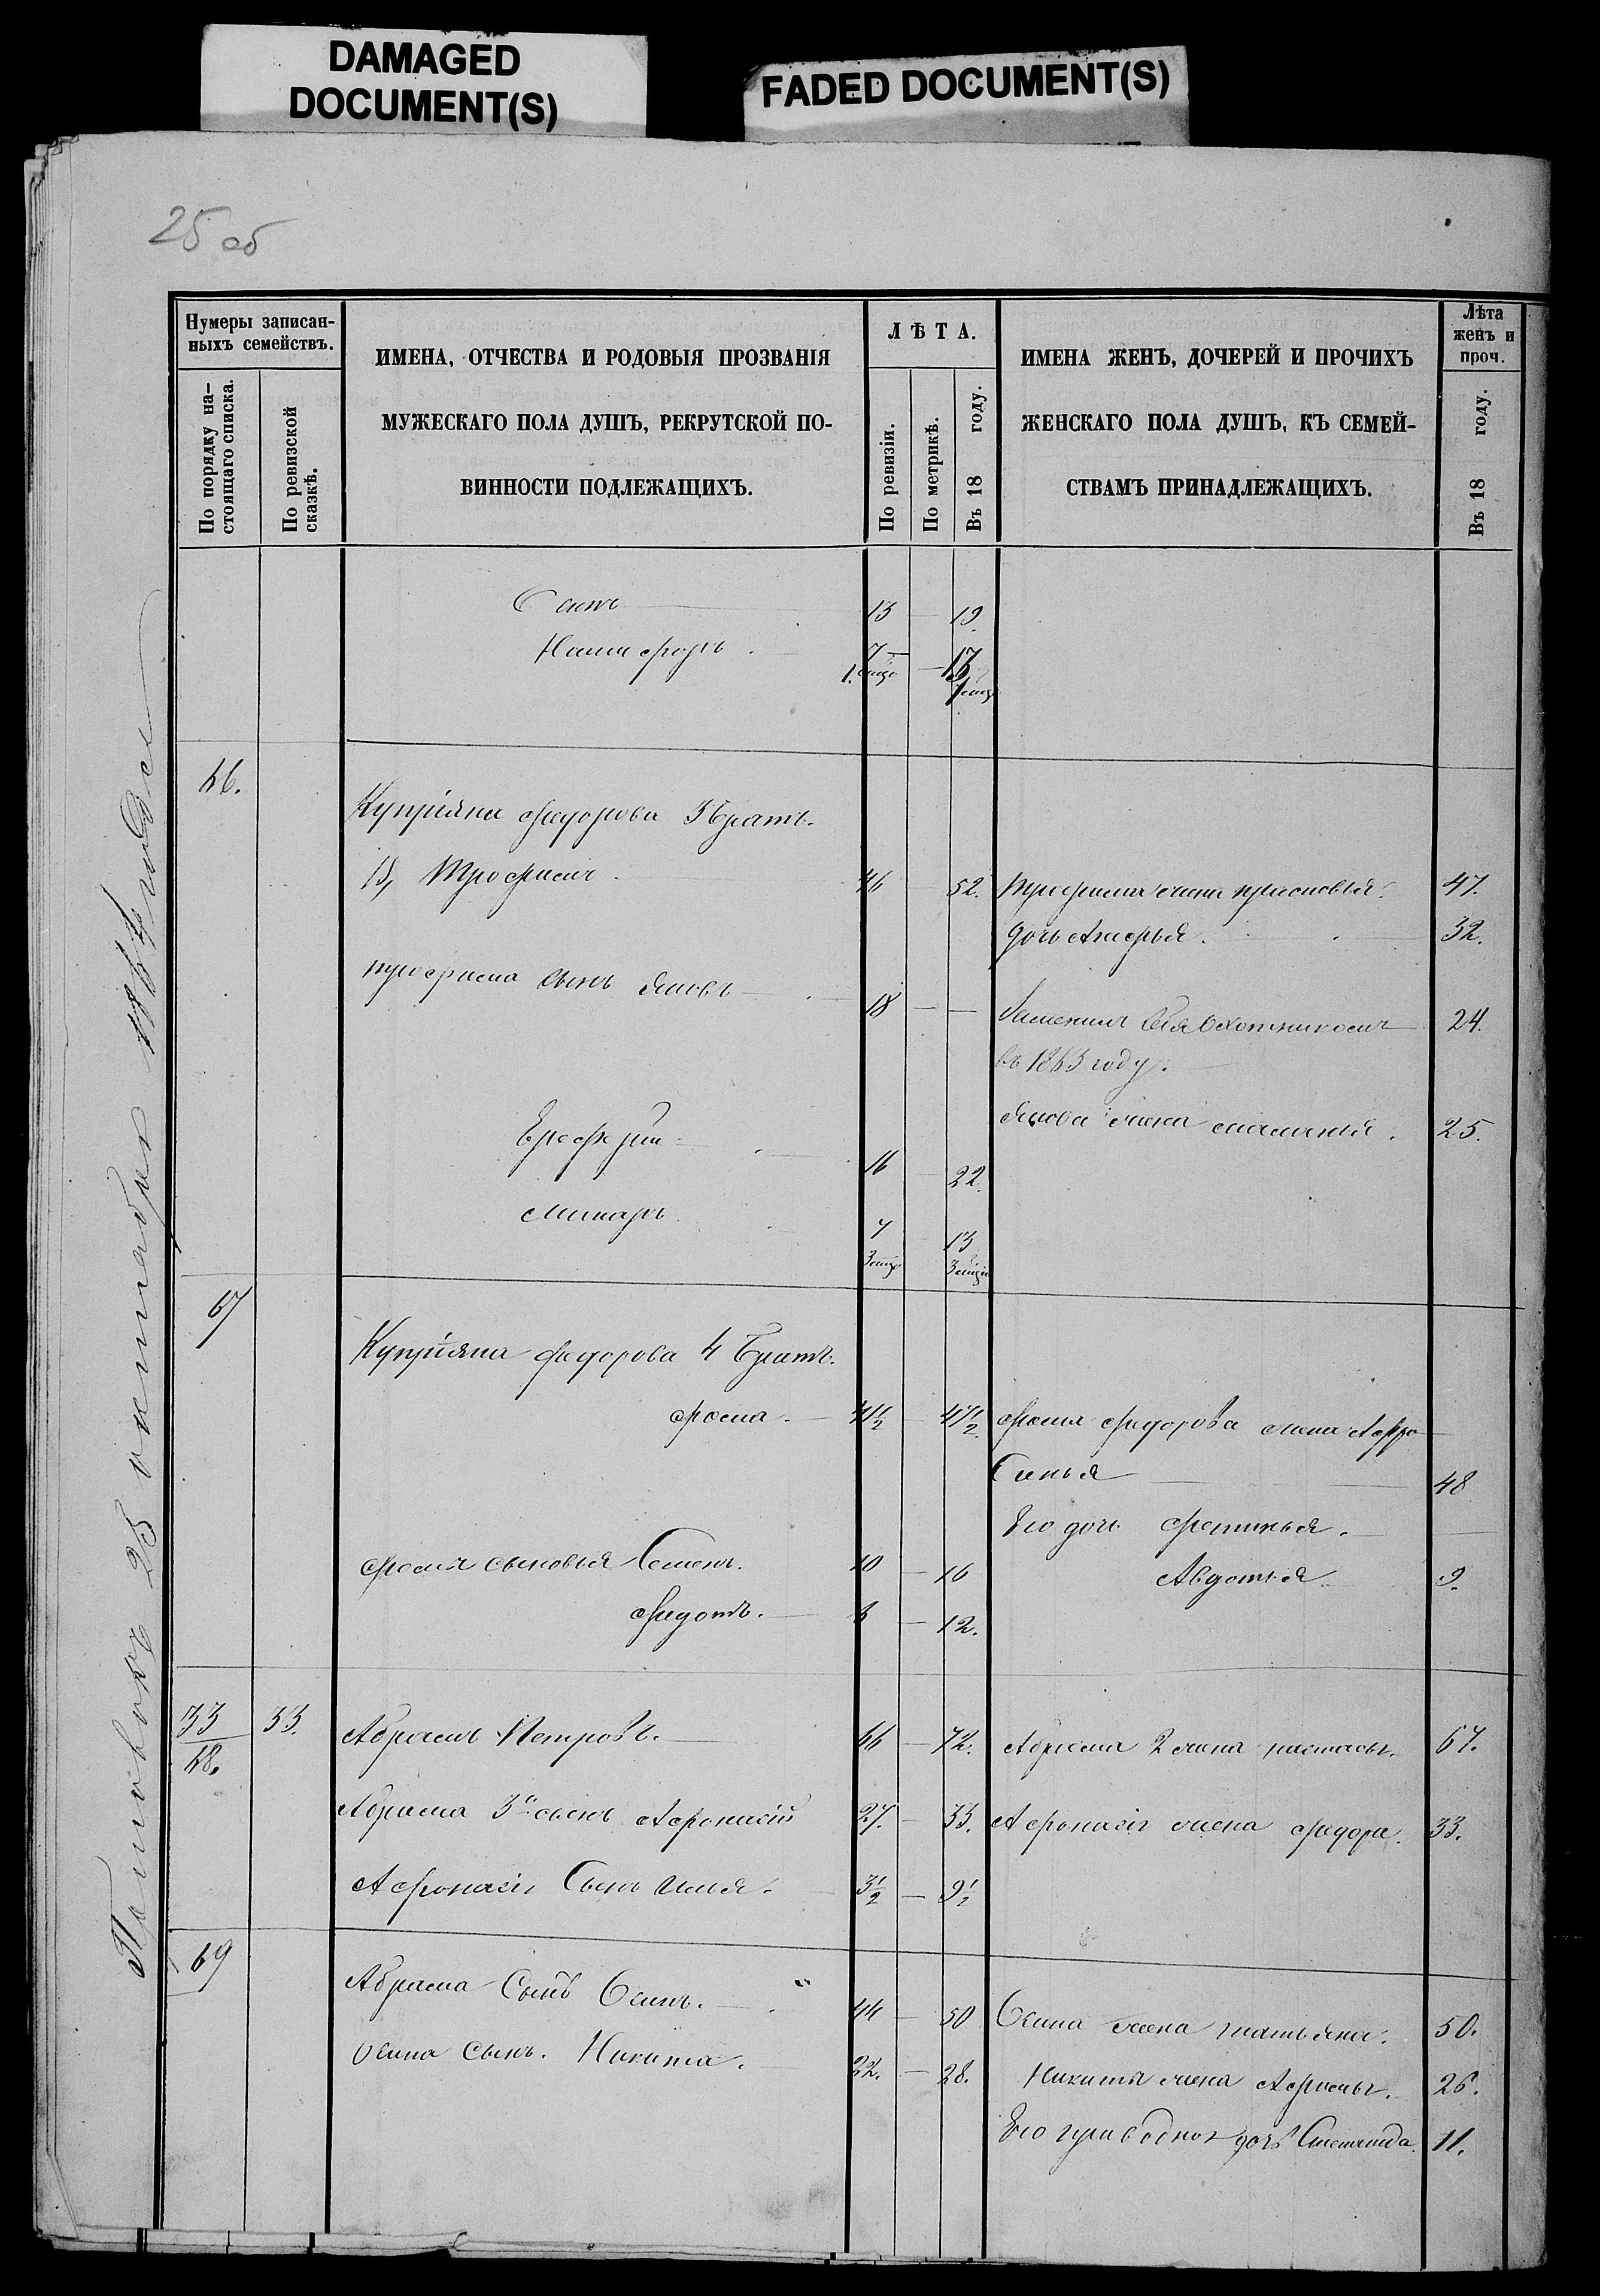 DAMAGED
DOCUMENT(S)
FADED DOCUMENT(S)
25 об
Нумеры записан-
ныхъ семействъ.
По порядку на-
стоящаго списка.
По ревизской
сказкѣ.
ИМЕНА, ОТЧЕСТВА И РОДОВЫЯ ПРОЗВАНІЯ
МУЖЕСКАГО ПОЛА ДУШЪ, РЕКРУТСКОЙ ПО-
ВИННОСТИ ПОДЛЕЖАЩИХЪ.
ЛѢТА.
По ревизіи.
По метрикѣ.
Въ 18 году.
ИМЕНА ЖЕНЪ, ДОЧЕРЕЙ И ПРОЧИХЪ
ЖЕНСКАГО ПОЛА ДУШЪ, КЪ СЕМЕЙ-
СТВАМЪ ПРИНАДЛЕЖАЩИХЪ.
Лѣта
женъ и
проч.
Въ 18 году.
Осипъ 13 19.
Никифоръ 7 13
66.
Купріяна Федорова 3 братъ.
Трофимъ 46 52. Трофима жена Прасковья. 47.
дочь 32.
Трофима сынъ Яковъ 18 24.
въ 1863 году.
Якова жена 25.
16 22.
Макаръ 7 13
67
Купріяна Федорова 4 братъ.
Фома. 41 1/2 47 1/2 Фома Федорова жена Афро
синья 48
Его дочь Фетинья.
Фомы сыновья Семенъ. 10 16 Авдотья 9.
Федотъ. 6 12.
33 33. Абрамъ Петровъ. 66 72. Абрама 2 жена Настасья. 67.
68.
Абрама 3й сынъ Афонасій 27. 33. Афонасія жена Федора. 33.
Афонасія сынъ Илья. 3 1/2 9 1/2
69
Абрама сынъ Осипъ. 44 50 Осипа жена Татьяна. 50.
Осипа сынъ. Никита. 22. 28. Никиты жена 26.
Его приводная дочь Степанида. 11.
25 октября